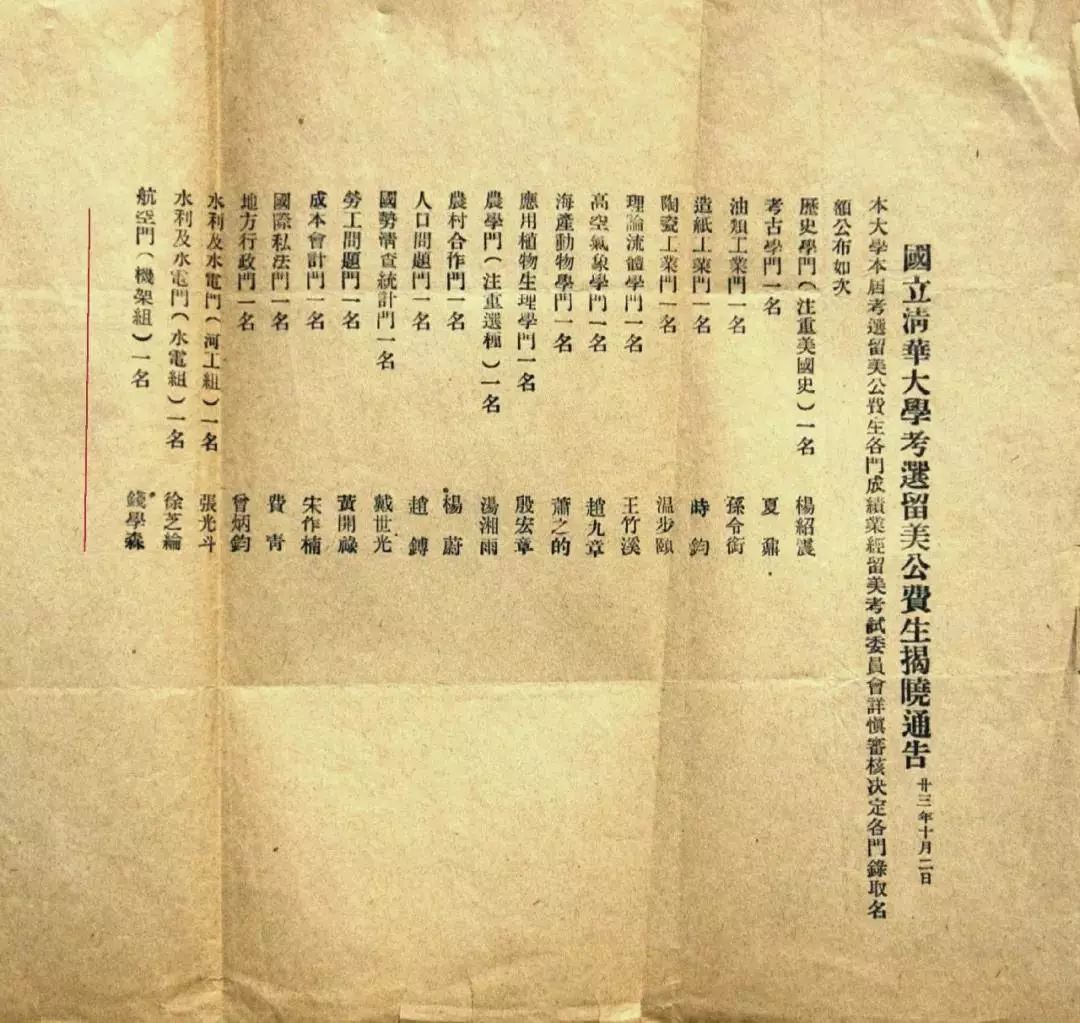 國立清華大學考選留美公費生揭曉通告 廿三年十月二日
本大學本屆考選留美公費生各門成績業經留美考試委員會詳慎審核决定各門錄取名
額公布如次
歷史學門(注重美國史)一名 楊紹震
考古學門一名 夏鼐
油類工業門一名 孫令銜
造紙工業門一名 時鈞
陶瓷工業門一名 温步頤
理論流體學門一名 王竹溪
高空氣象學門一名 趙九章
海產動物學門一名 蕭之的
應用植物生理學門一名 殷宏章
農學門(注重選種)一名 湯湘雨
農村合作門一名 楊蔚
人口問題門一名 趙鎛
國勢清查統計門一名 戴世光
勞工問題門一名 黃開祿
成本會計門一名 宋作楠
國際私法門一名 費青
地方行政門一名 曾炳鈞
水利及水電門(河工組)一名 張光斗
水利及水電門(水電組)一名 徐芝綸
航空門(機架組)一名 錢學森